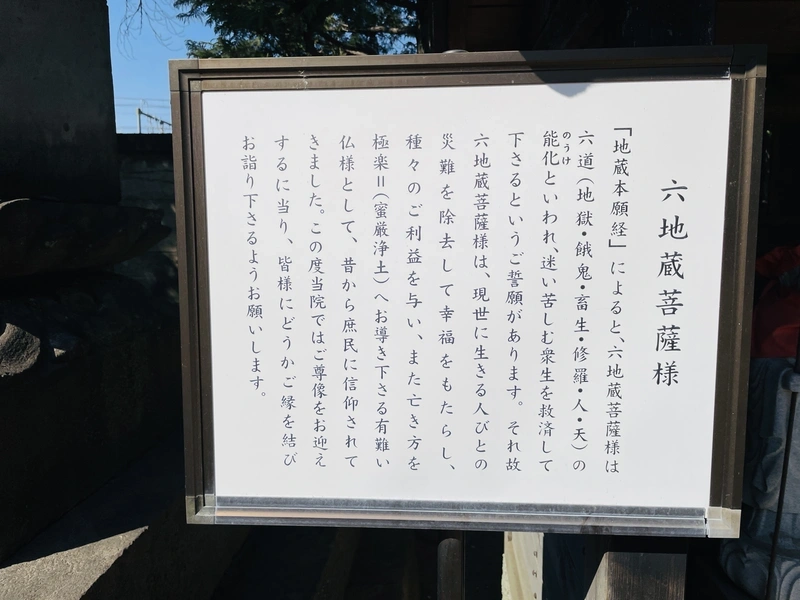 六地蔵菩薩様
「地蔵本願経」によると、六地蔵菩薩様は
六道（地獄・餓鬼・畜生・修羅・人・天）の
能化といわれ、迷い苦しむ衆生を救済して
のうけ
下さるというご誓願があります。それ故
六地蔵菩薩様は、現世に生きる人びとの
災難を除去して幸福をもたらし、
種々のご利益を与い、また亡き方を
極楽＝（蜜厳浄土）へお導き下さる有難い
仏様として、昔から庶民に信仰されて
きました。この度当院ではご尊像をお迎え
するに当り、皆様にどうかご縁を結び
お詣り下さるようお願いします。